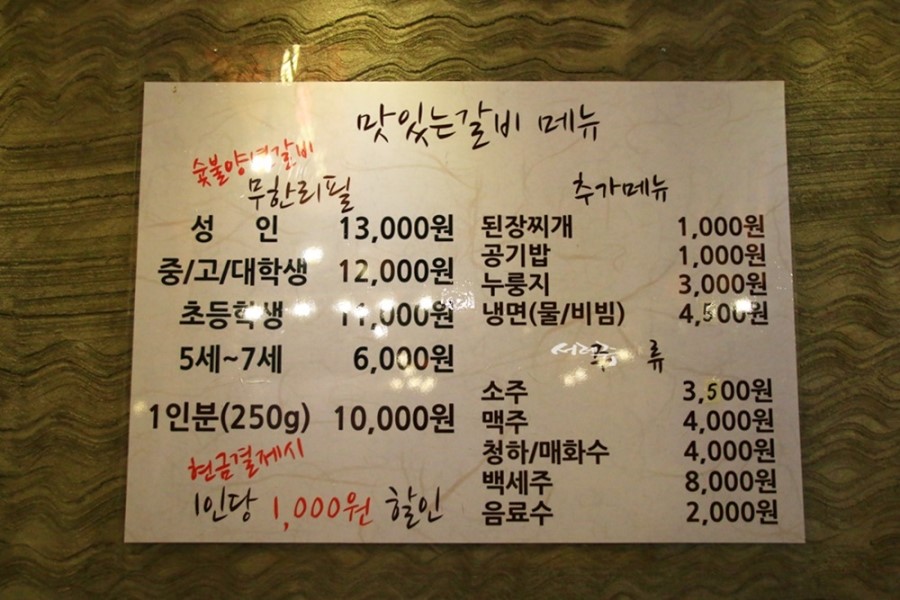 맛있는갈비 메뉴
숯불양념갈비
무한리필
성 인 13,000원
중/고/대학생 12,000원
초등학생 11,000원
5세~7세 6,000원
1인분(250g) 10,000원
현금결제시
1인당 1,000원 할인
추가메뉴
된장찌개 1,000원
공기밥 1,000원
누룽지 3,000원
냉면(물/비빔) 4,500원
주 류
소주 3,500원
맥주 4,000원
청하/매화수 4,000원
백세주 8,000원
음료수 2,000원